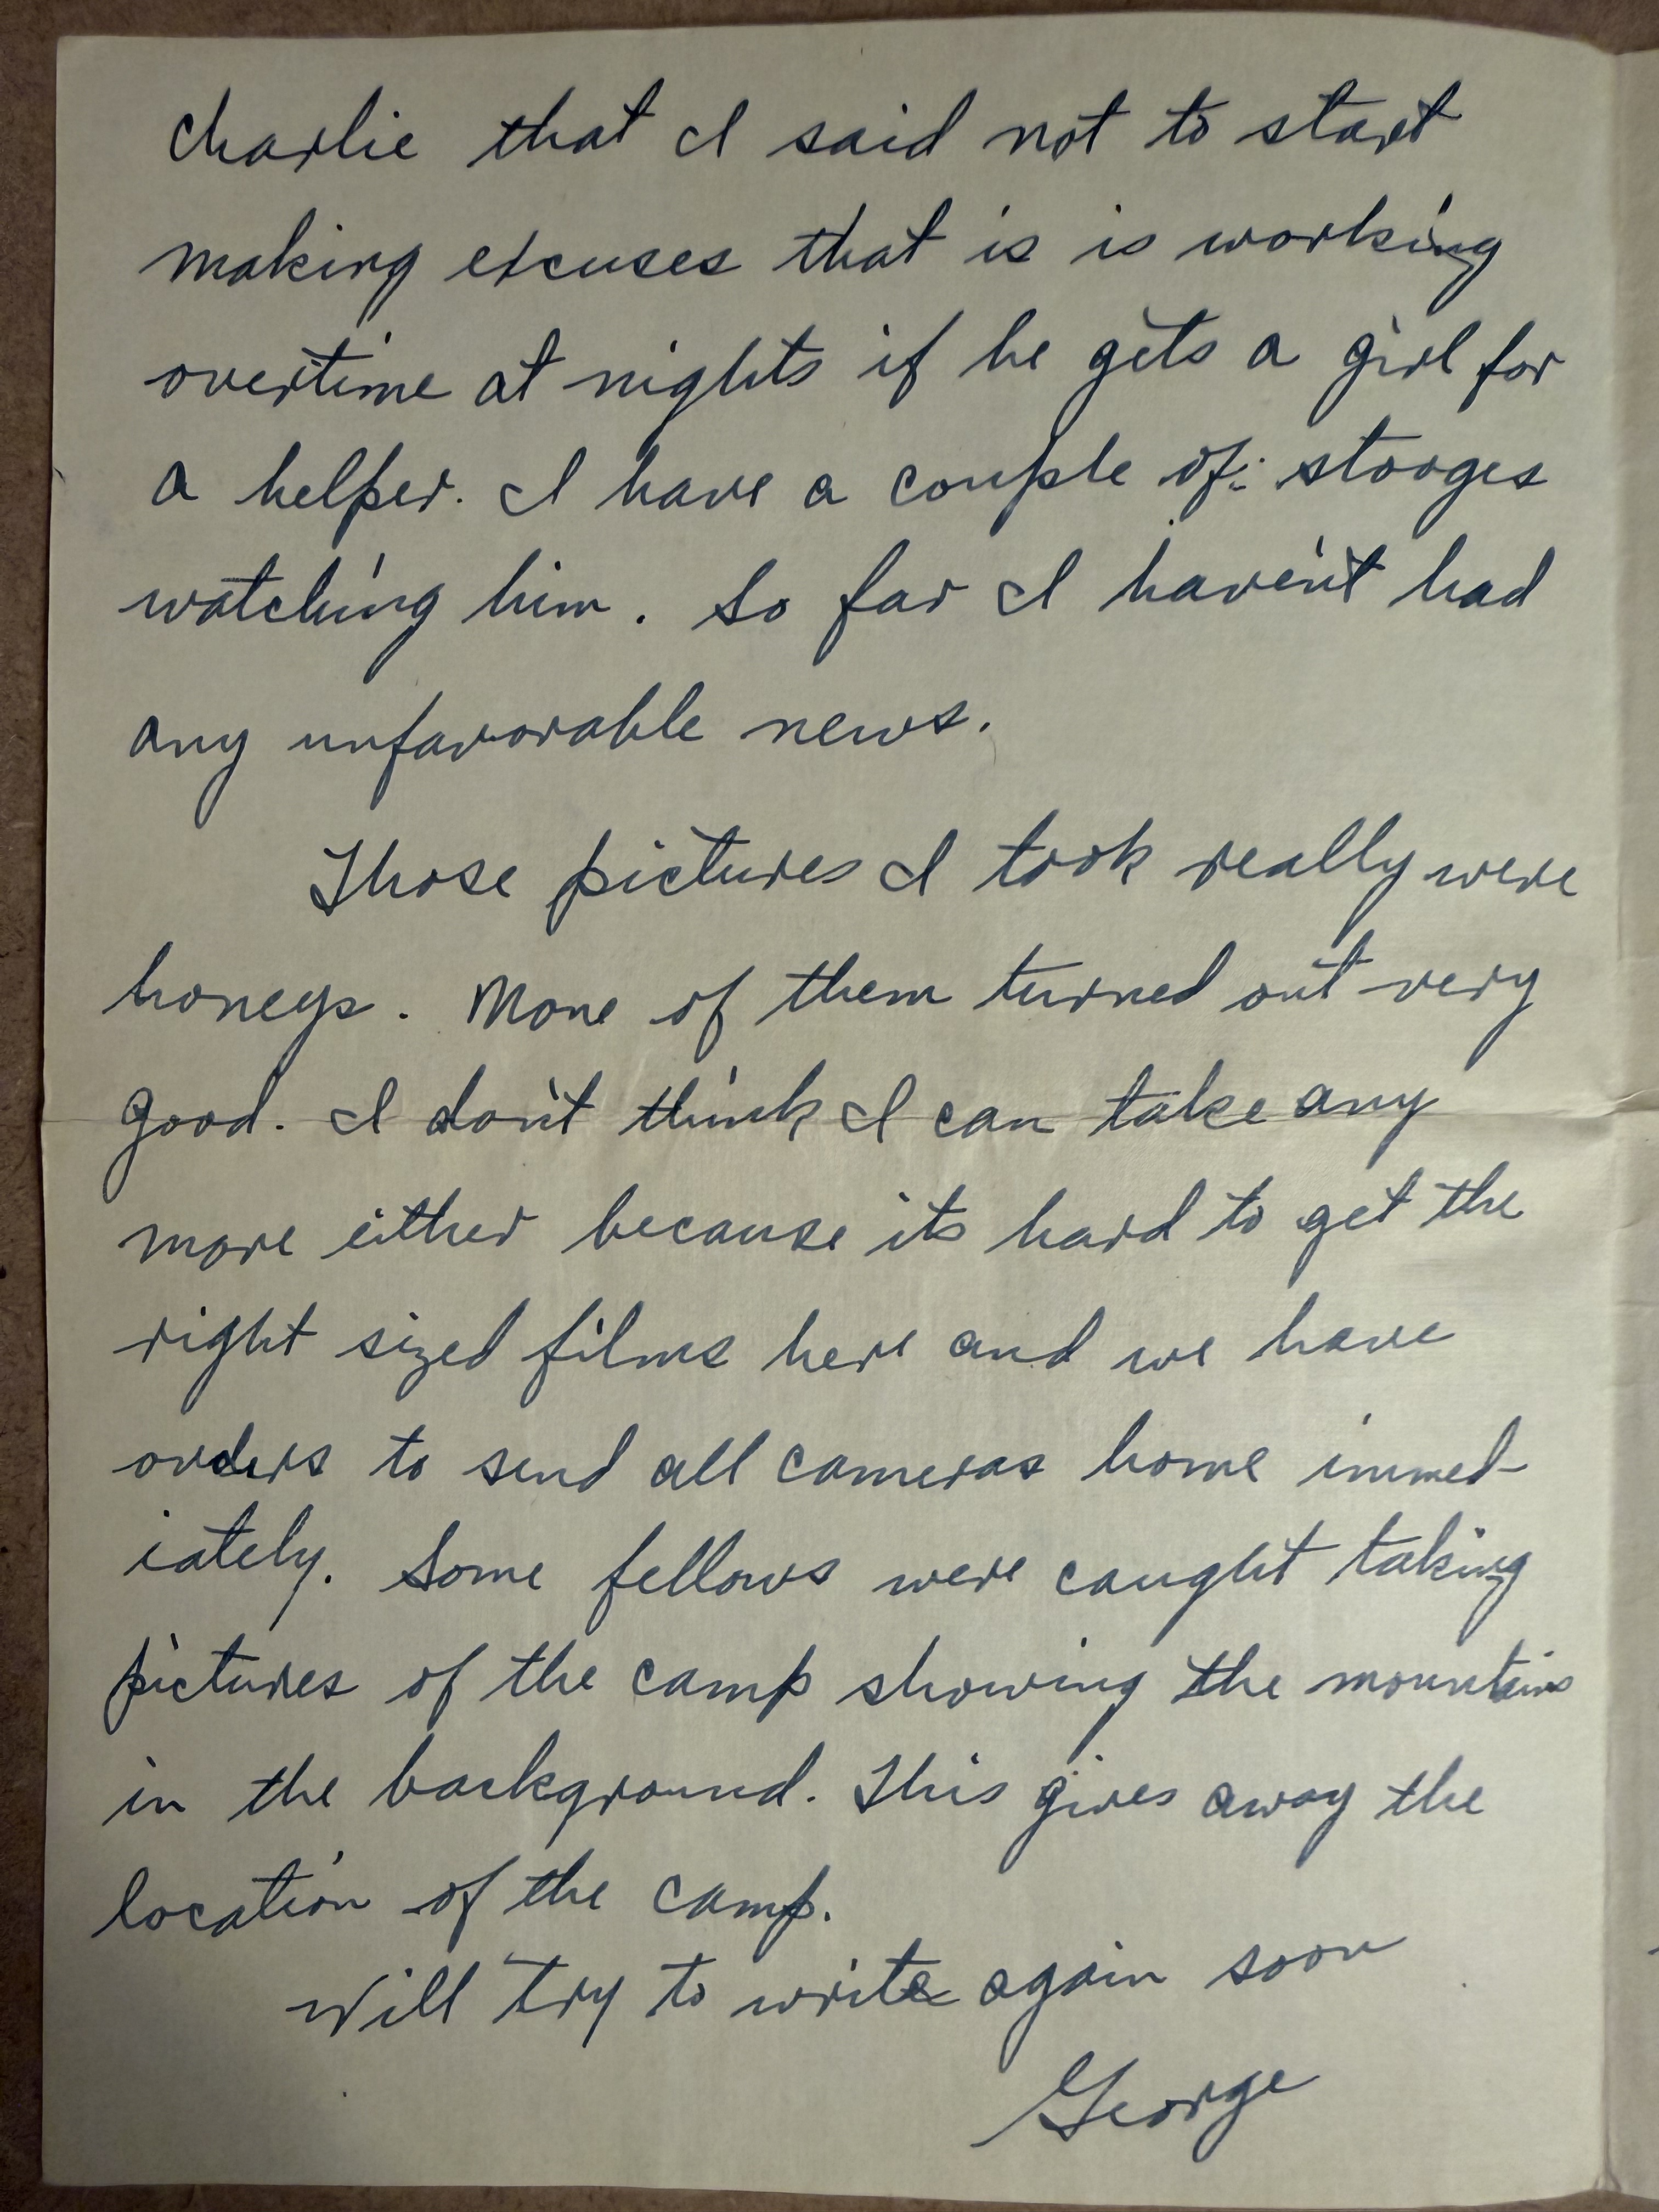 Charlie that I said not to start
making excuses that is is working
overtime at nights if he gets a girl for
a helper. I have a couple of stooges
watching him. So far I haven't had
any unfavorable news.
Those pictures I took really were
honeys. None of them turned out very
good. I don't think I can take any
more either because its hard to get the
right sized films here and we have
orders to send all cameras home immed-
iately. Some fellows were caught taking
pictures of the camp showing the mountains
in the background. This gives away the
location of the camp.
Will try to write again soon
George